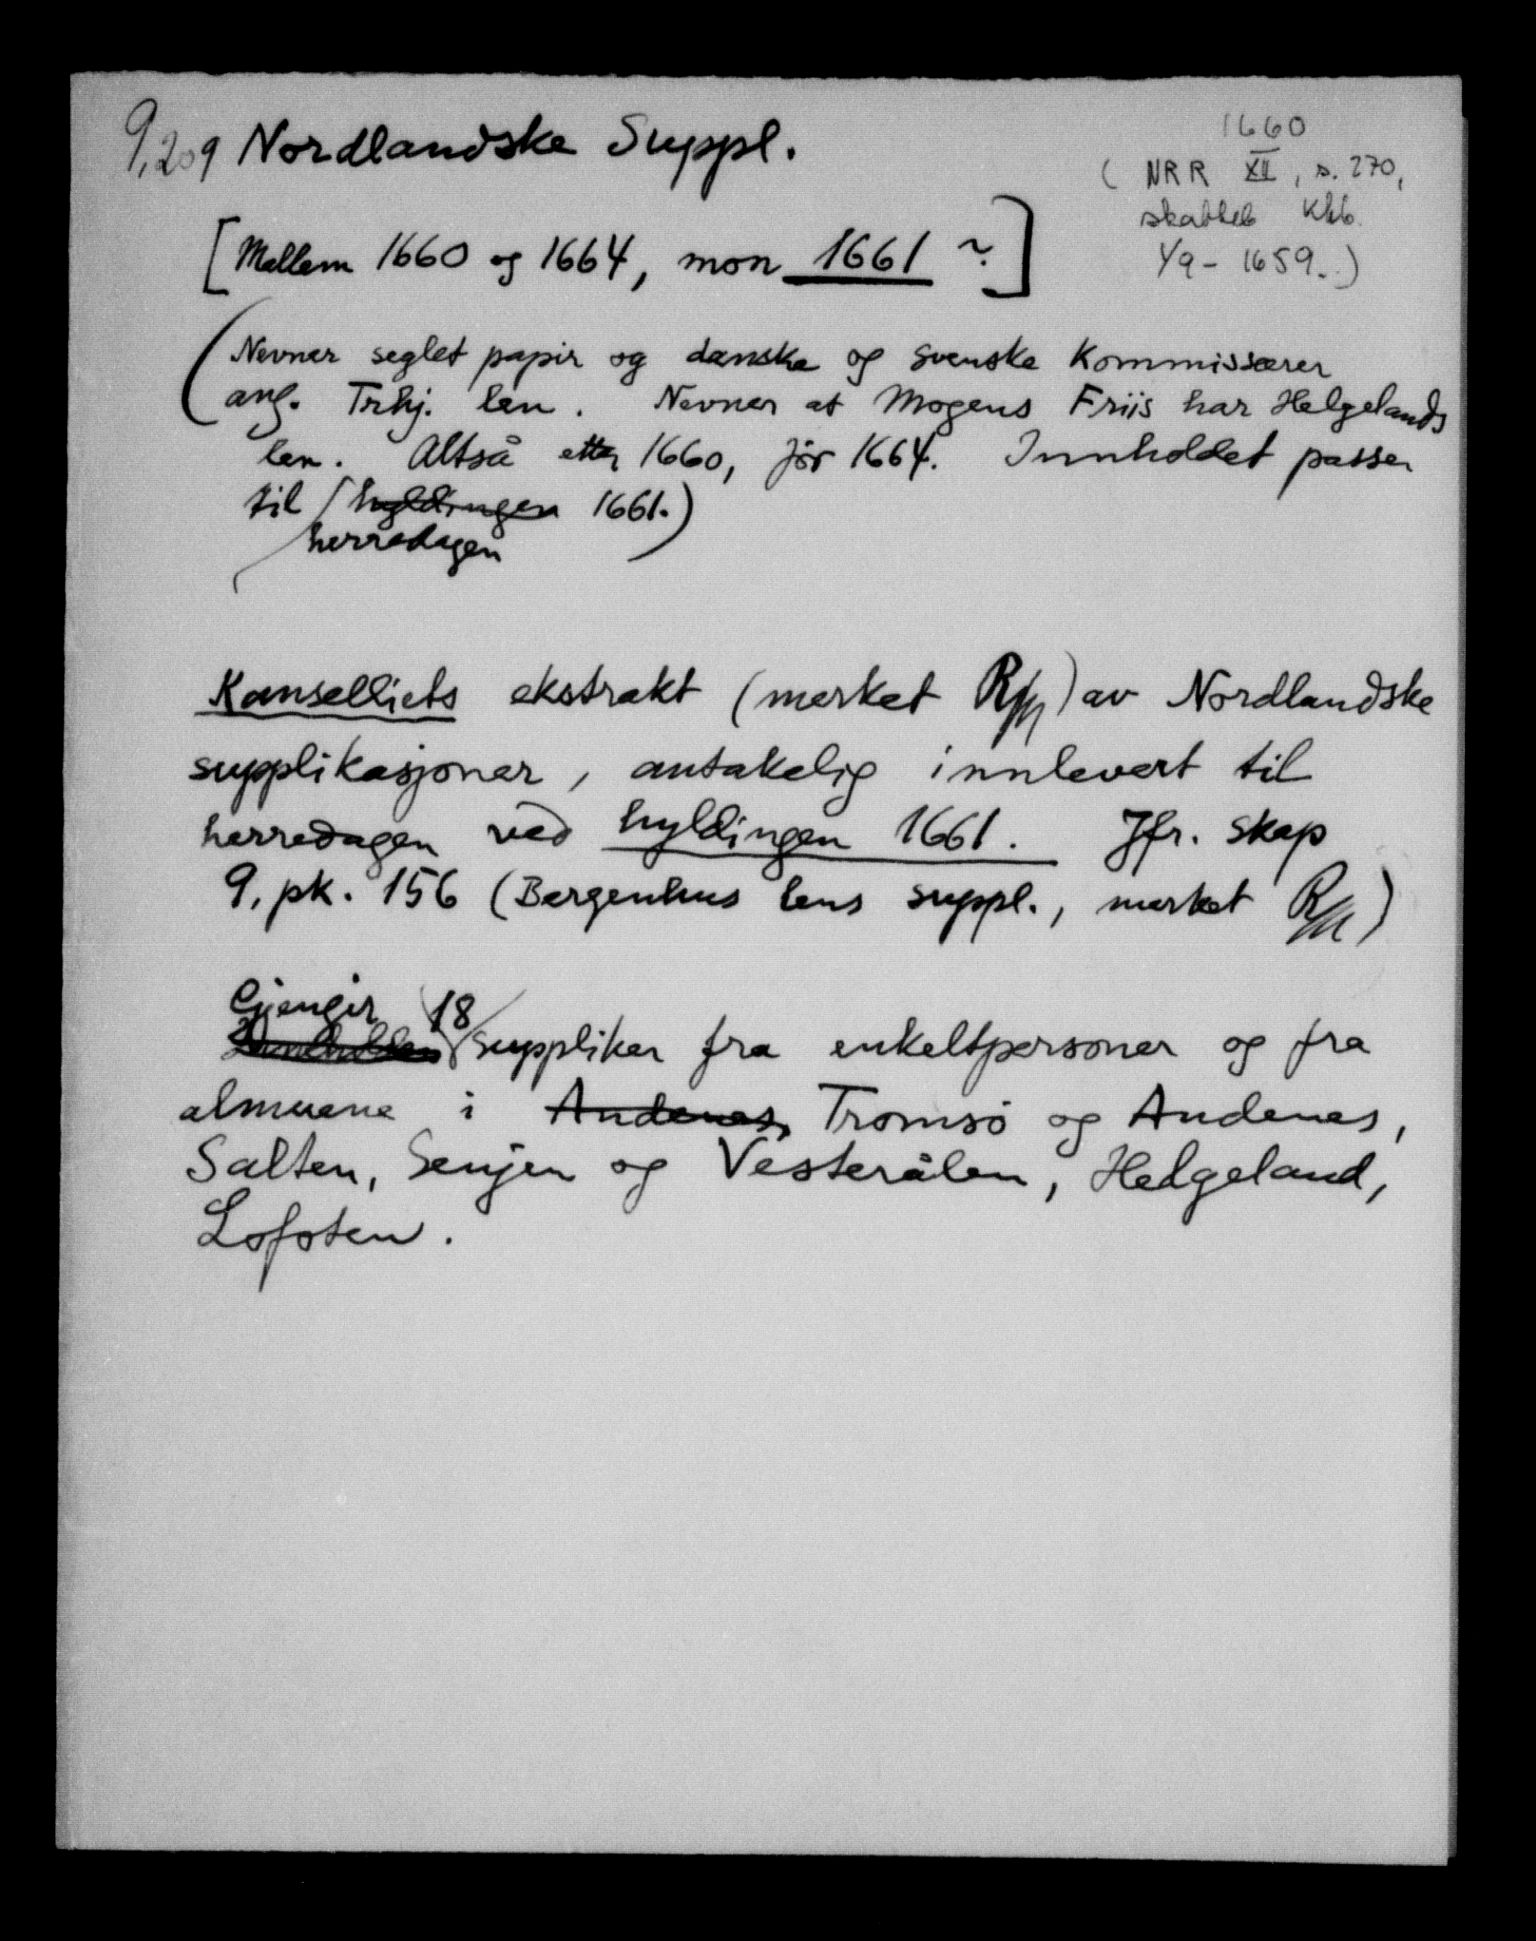 9,209 Nordlandske Suppl.
1660
( NRR XII, s. 270,
skatteb Khb.
1/9 - 1659.)
[Mellem 1660 og 1664, mon 1661 ?]
(Nevner seglet papir og danske og svenske Kommissærer
ang. Trhj. len. Nevner at Mogens Friis har Helgelands
len. Altså etter 1660, før 1664. Innholdet passer
til hyldingen 1661.)
herredagen
Kanselliets ekstrakt (merket R) av Nordlandske
supplikasjoner, antakelig innlevert til
herredagen ved hyldingen 1661. Jfr. skap
9, pk. 156 (Bergenhus lens suppl., merket R)
Gjengir 18
supplikker fra enkeltpersoner og fra
almuene i Andenes, Tromsö og Andenes,
Salten, Senjen og Vesterålen, Helgeland,
Lofoten.